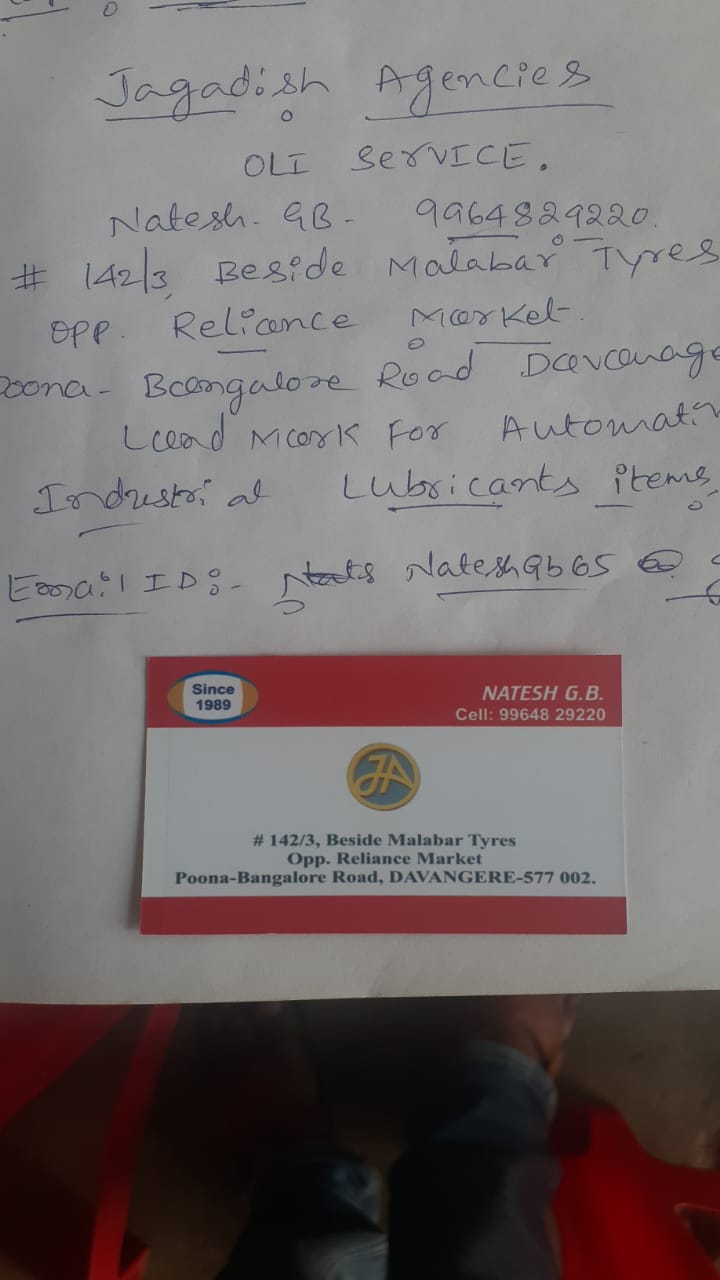 Jagadish Agencies
OLI SERVICE.
Natesh. GB - 9964829220.
# 142/3, Beside Malabar Tyres
OPP. Reliance Market.
Poona - Bangalore Road Davanage
Land Mark For Automativ
Industrial Lubricants items,
Email ID:- NateshGb65
Since
1989
NATESH G.B.
Cell: 99648 29220
JA
# 142/3, Beside Malabar Tyres
Opp. Reliance Market
Poona-Bangalore Road, DAVANGERE-577 002.